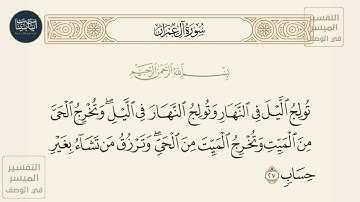 سُورَةُ آلِ عِمْرَان
التفسير
الميسر
في الوصف
بِسْمِ اللَّهِ الرَّحْمَٰنِ الرَّحِيمِ
تُولِجُ الَّيْلَ فِي النَّهَارِ وَتُولِجُ النَّهَارَ فِي الَّيْلِ ۖ وَتُخْرِجُ الْحَيَّ
مِنَ الْمَيِّتِ وَتُخْرِجُ الْمَيِّتَ مِنَ الْحَيِّ ۖ وَتَرْزُقُ مَن تَشَاءُ بِغَيْرِ
حِسَابٍ ٢٧
التفسير
الميسر
في الوصف